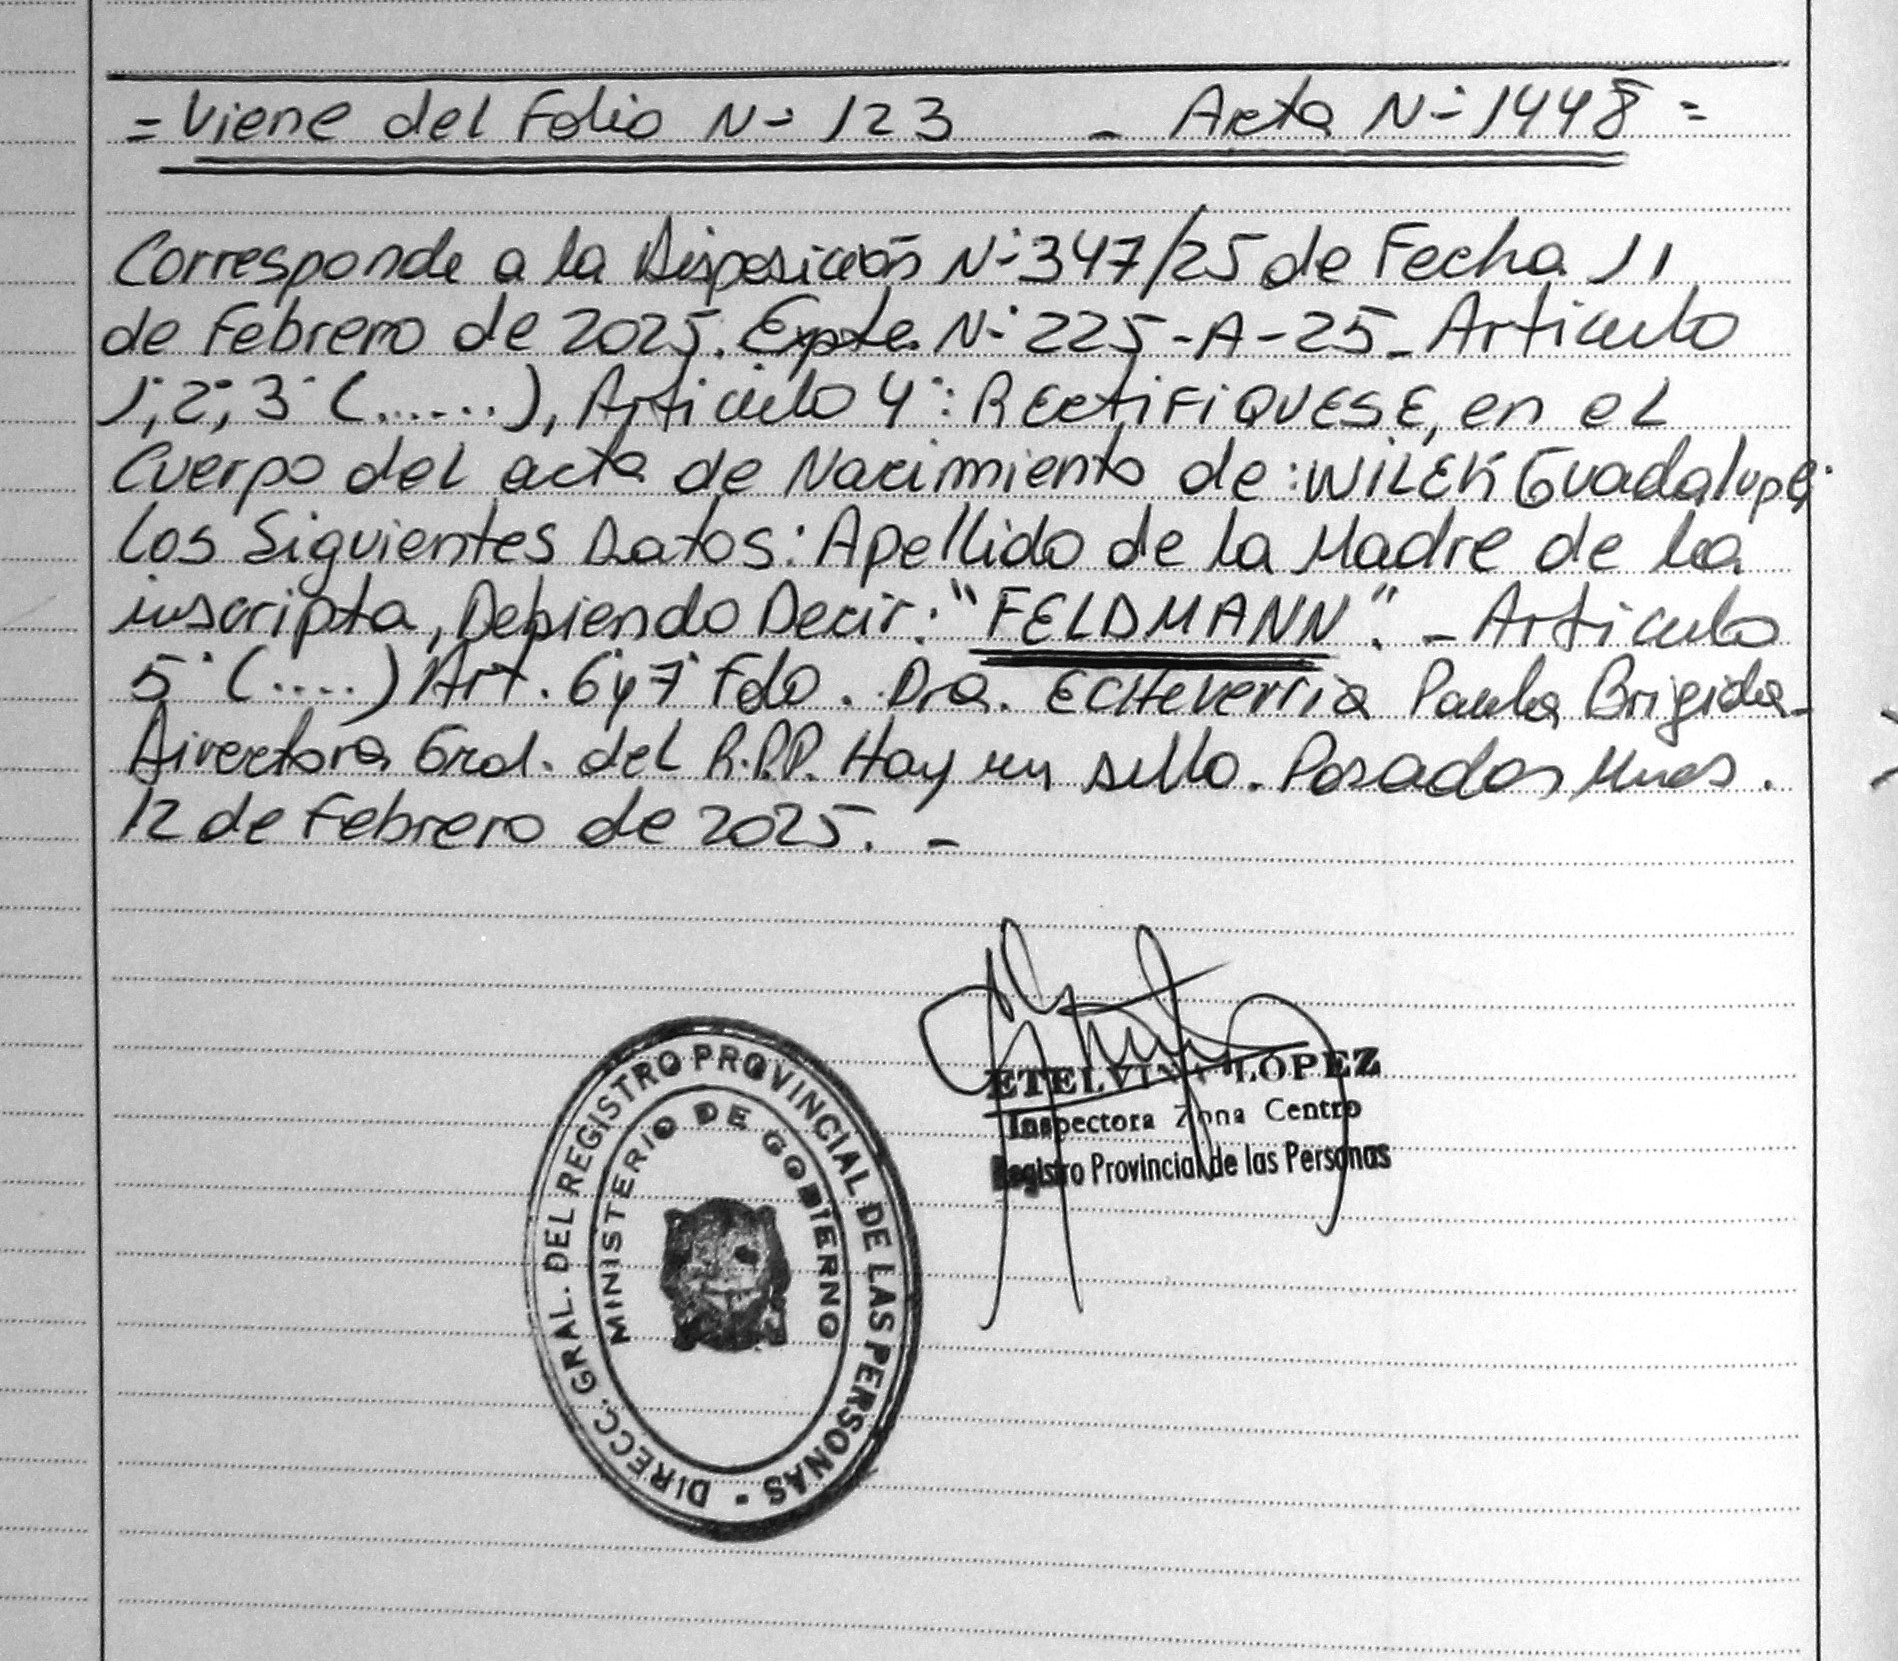 = Viene del Folio N- 123 - Acta N- 1448 =
Corresponde a la Disposición N- 347/25 de Fecha 11
de Febrero de 2025. Expte. N- 225-A-25_ Articulo
1°, 2°, 3° (......), Articulo 4°: RECTIFIQUESE, en el
Cuerpo del acta de Nacimiento de: WILEK Guadalupe;
los Siguientes Datos: Apellido de la Madre de la
inscripta, Debiendo Decir: "FELDMANN". - Articulo
5° (.....) Art. 6 y 7° Fdo. Dra. ECHeverria Paula Brigida_
Directora Gral. del R.P.P. Hay un sello. Posadas Mnes.
12 de Febrero de 2025. -
ETELVINA LOPEZ
Inspectora Zona Centro
Registro Provincial de las Personas
DIRECC. GRAL. DEL REGISTRO PROVINCIAL DE LAS PERSONAS -
MINISTERIO DE GOBIERNO